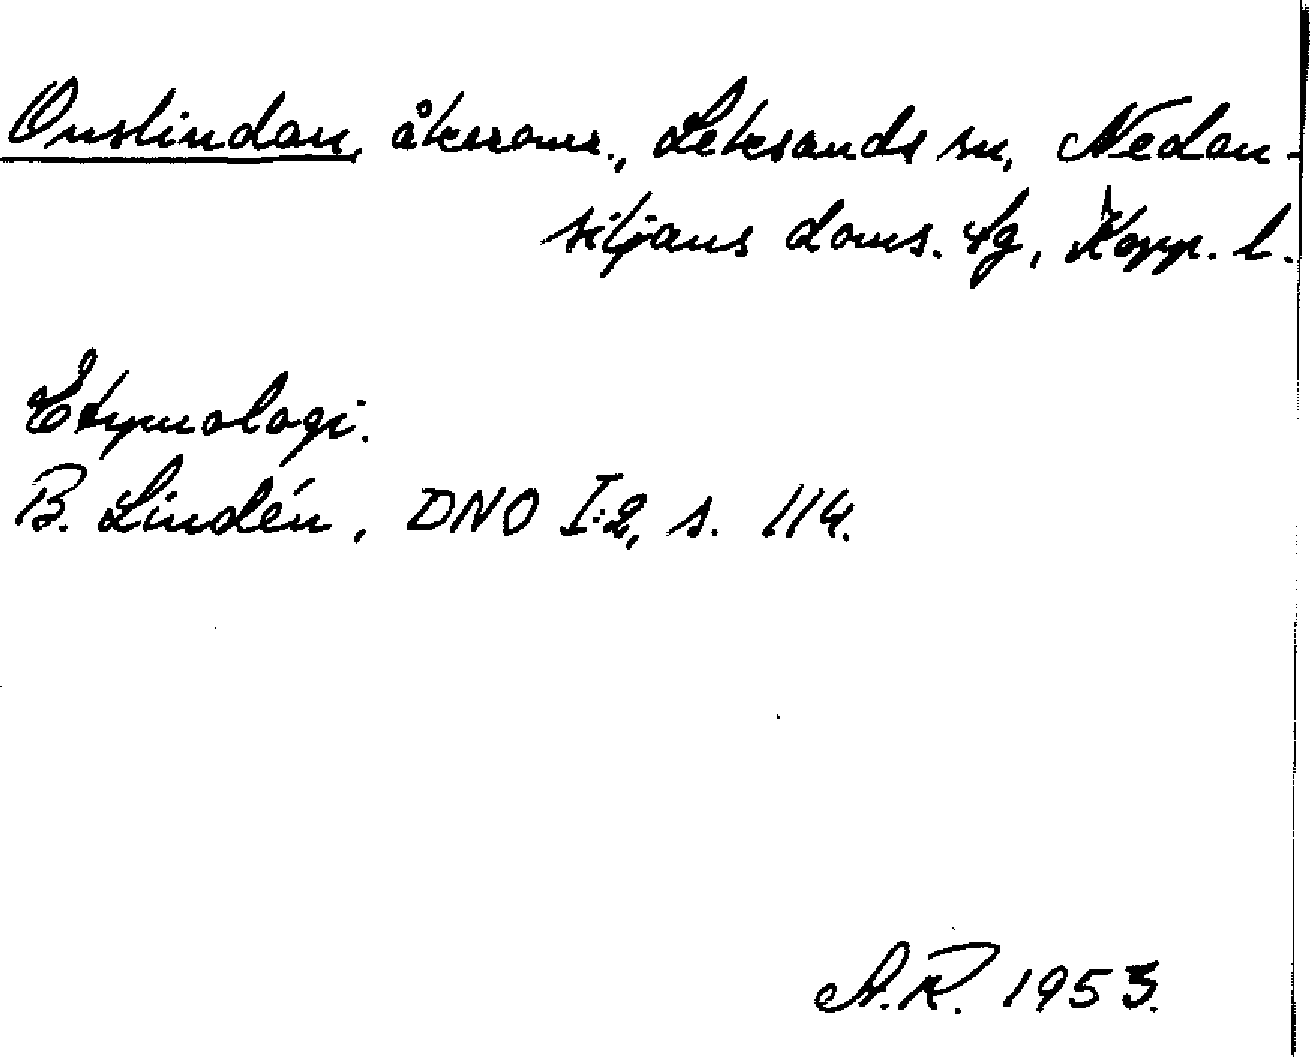 Onslindan, åkernamn., Leksands sn, Nedan-
siljans doms. tg, Kopp. l.
Etymologi.
B. Lindén, DNO I:2, s. 114.
A.R. 1953.